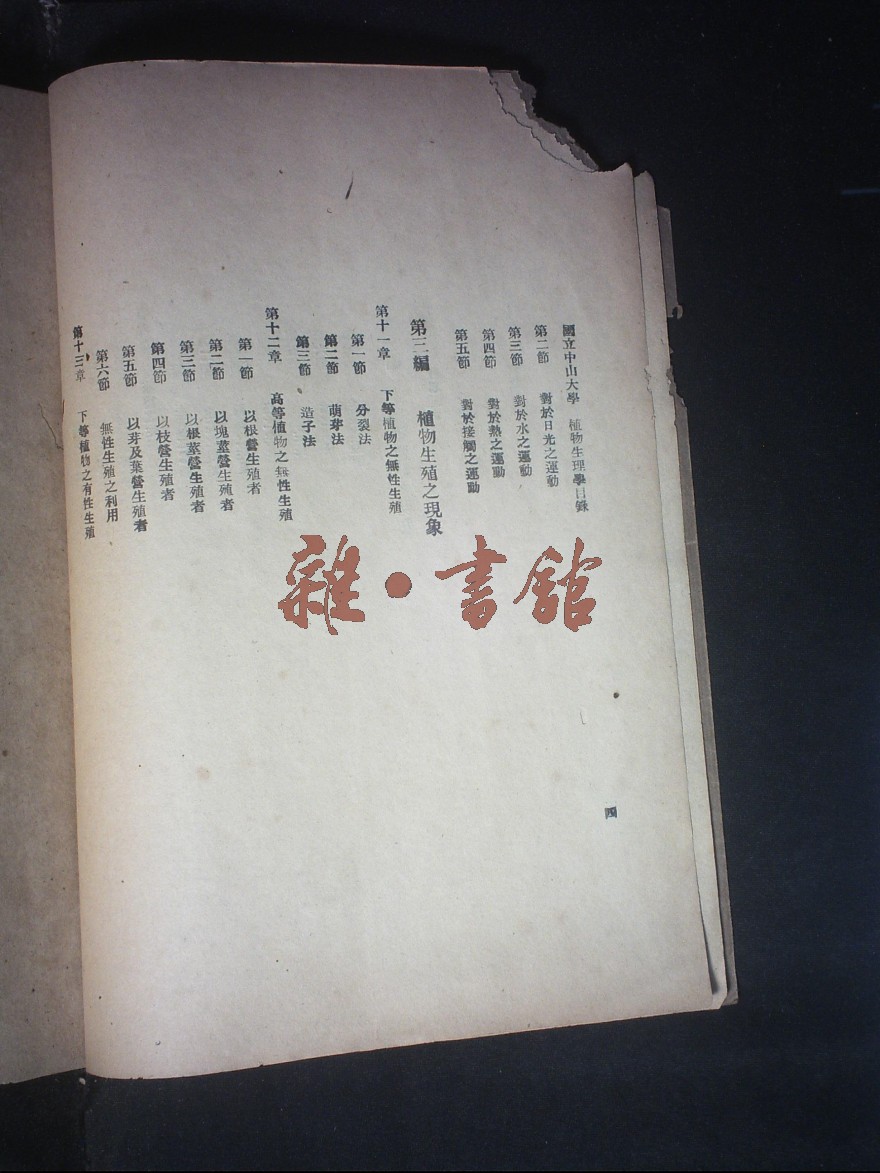 國立中山大學 植物生理學目錄
第二節 對於日光之運動
第三節 對於水之運動
第四節 對於熱之運動
第五節 對於接觸之運動
第三編 植物生殖之現象
第十一章 下等植物之無性生殖
第一節 分裂法
第二節 萌芽法
第三節 造子法
第十二章 高等植物之無性生殖
第一節 以根營生殖者
第二節 以塊莖營生殖者
第三節 以根莖營生殖者
第四節 以枝營生殖者
第五節 以芽及葉營生殖者
第六節 無性生殖之利用
第十三章 下等植物之有性生殖
四
雜·書館